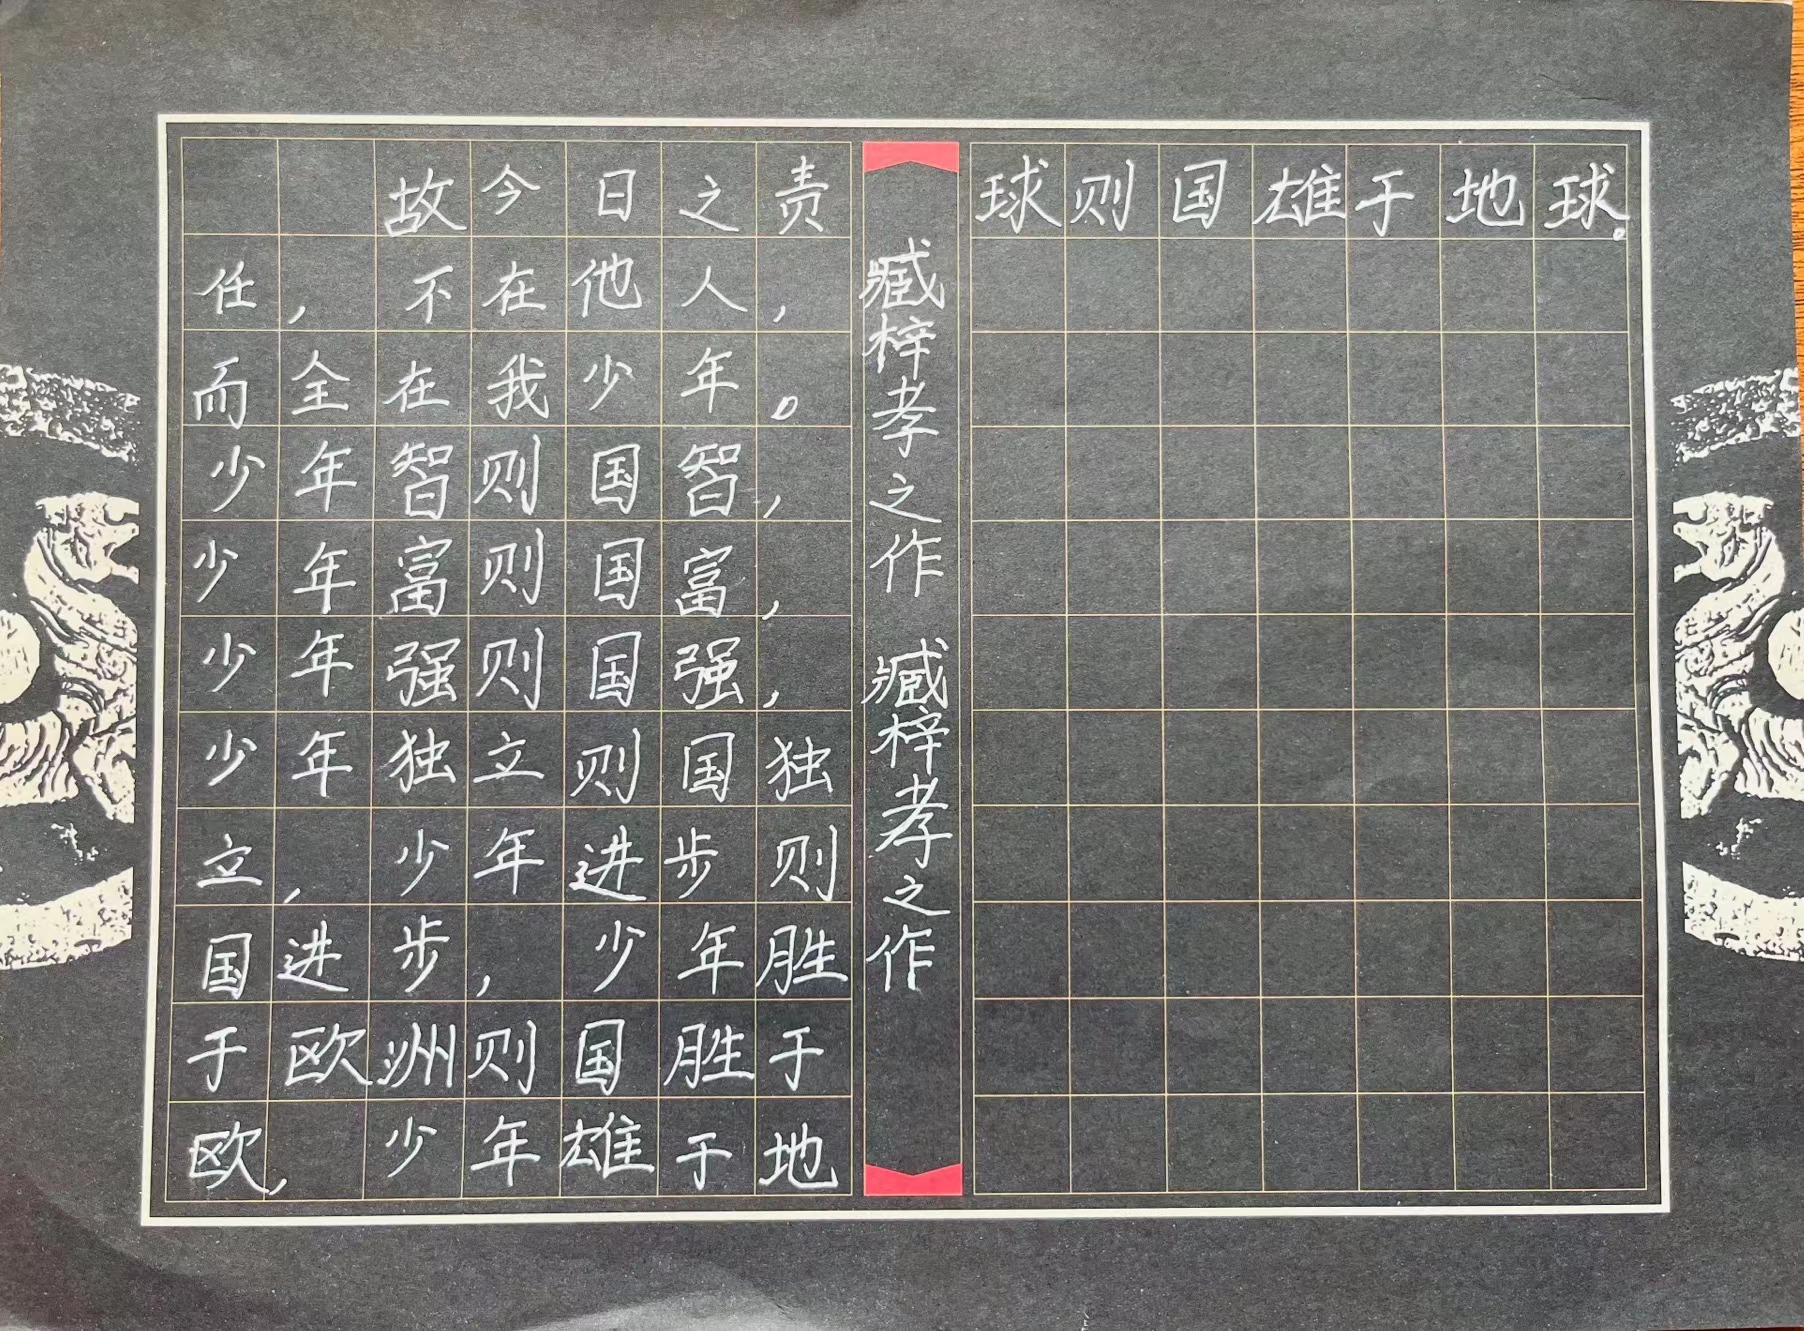 故今日之责
任，不在他人，
而全在我少年。
少年智则国智，
少年富则国富，
少年强则国强，
少年独立则国独
立，少年进步则
国进步，少年胜
于欧洲则国胜于
欧，少年雄于地
臧梓孝之作 臧梓孝之作
球则国雄于地球。